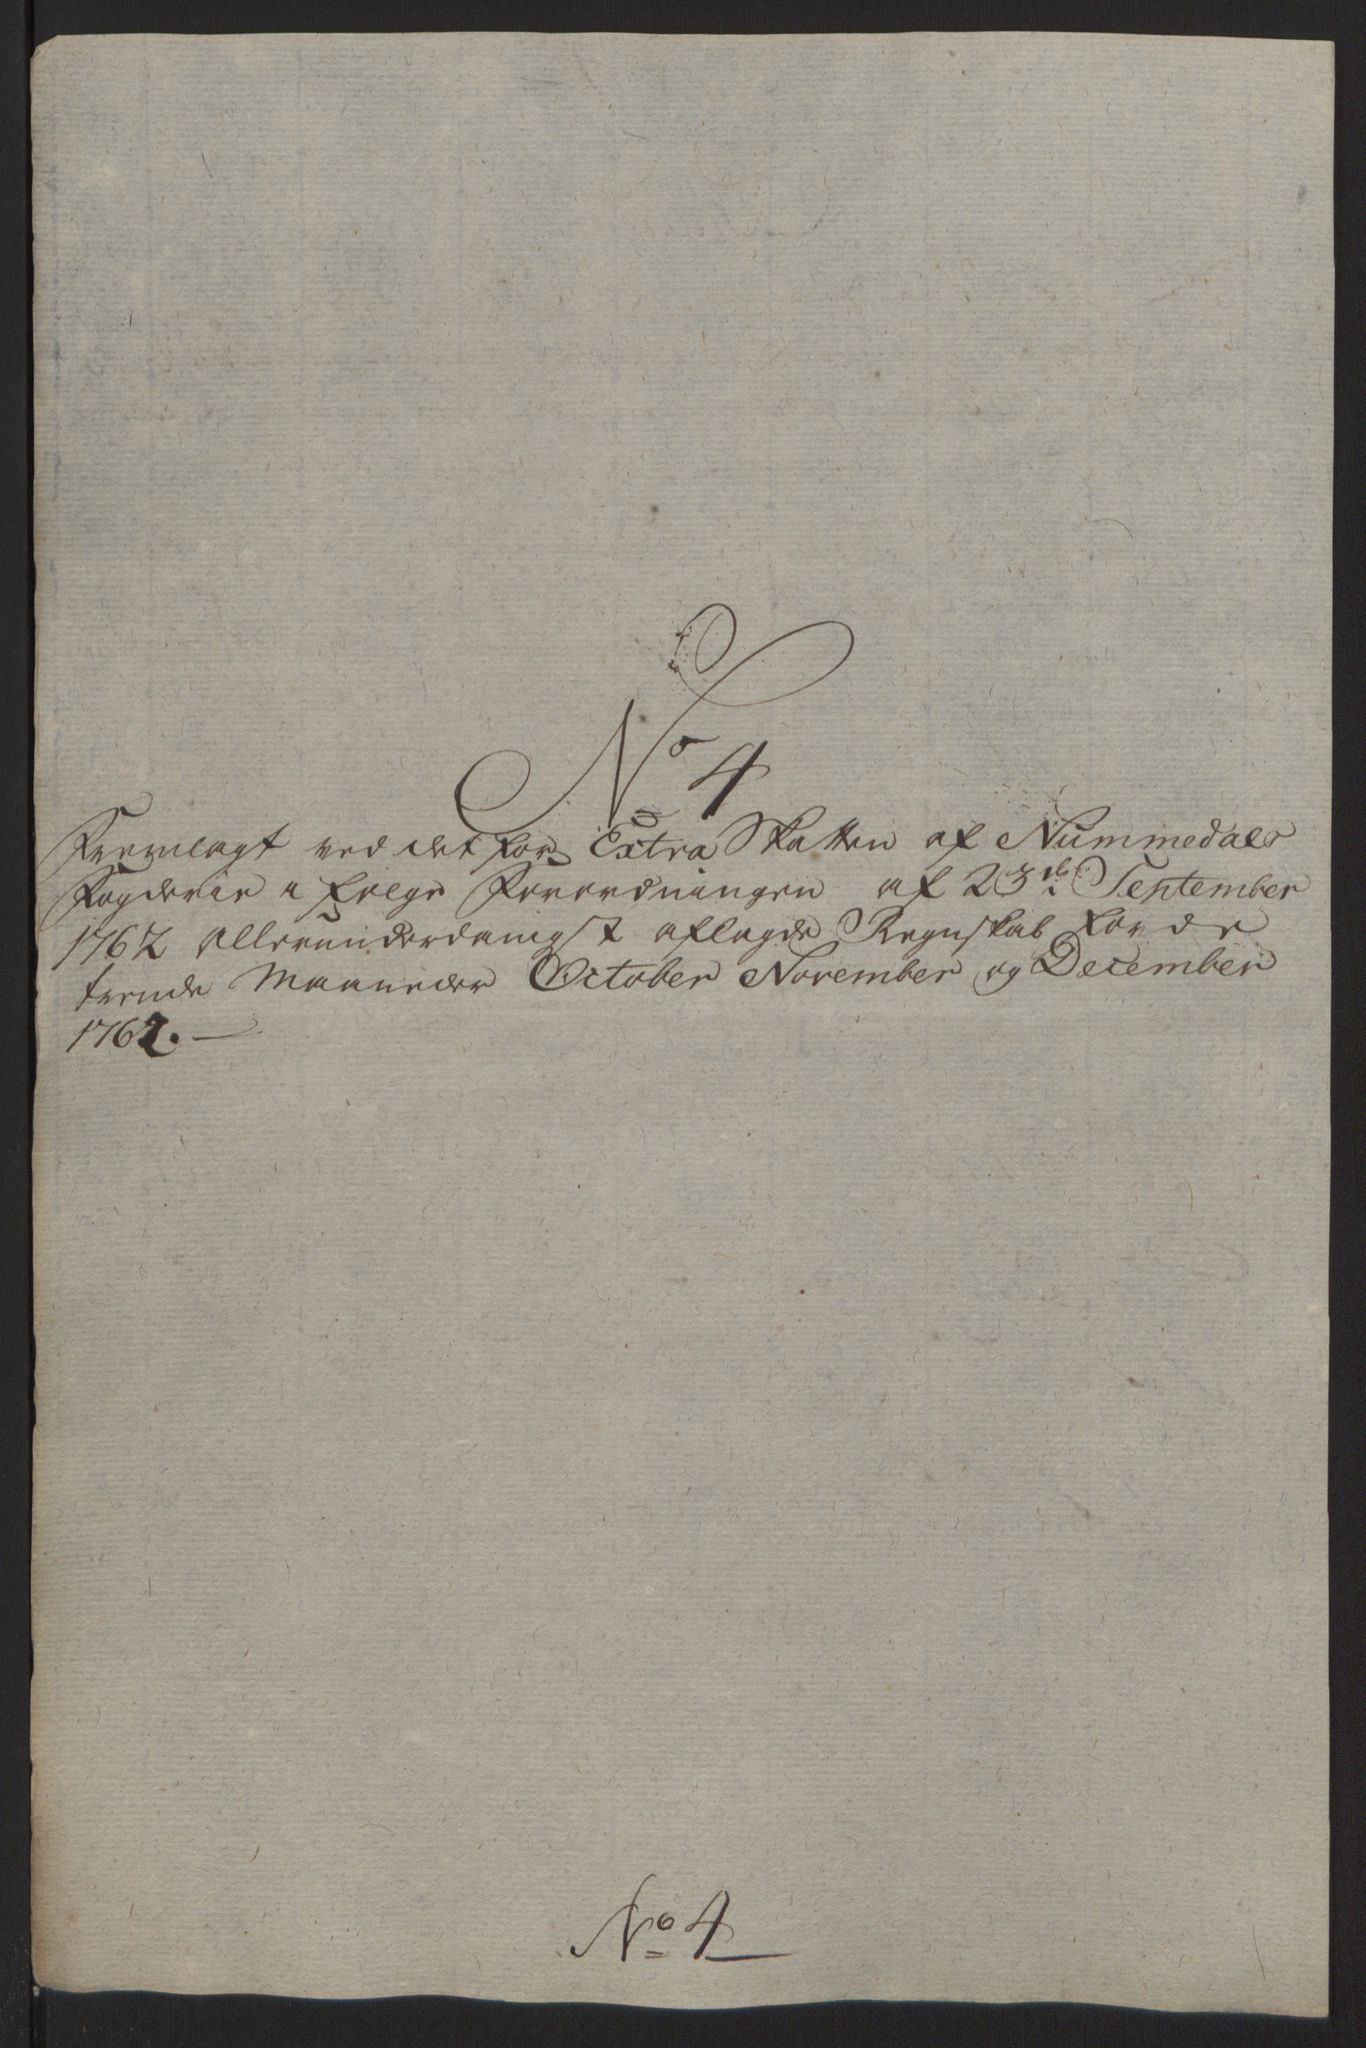 No 4
Fremlagt ved det for Extra Skatten af Nummedals
Fogderie i Følge Forordningen af 23de September
1762 Allerunderdanigst aflagde Regnskab for de
trende Maaneder October November og December
1762. —
No 4